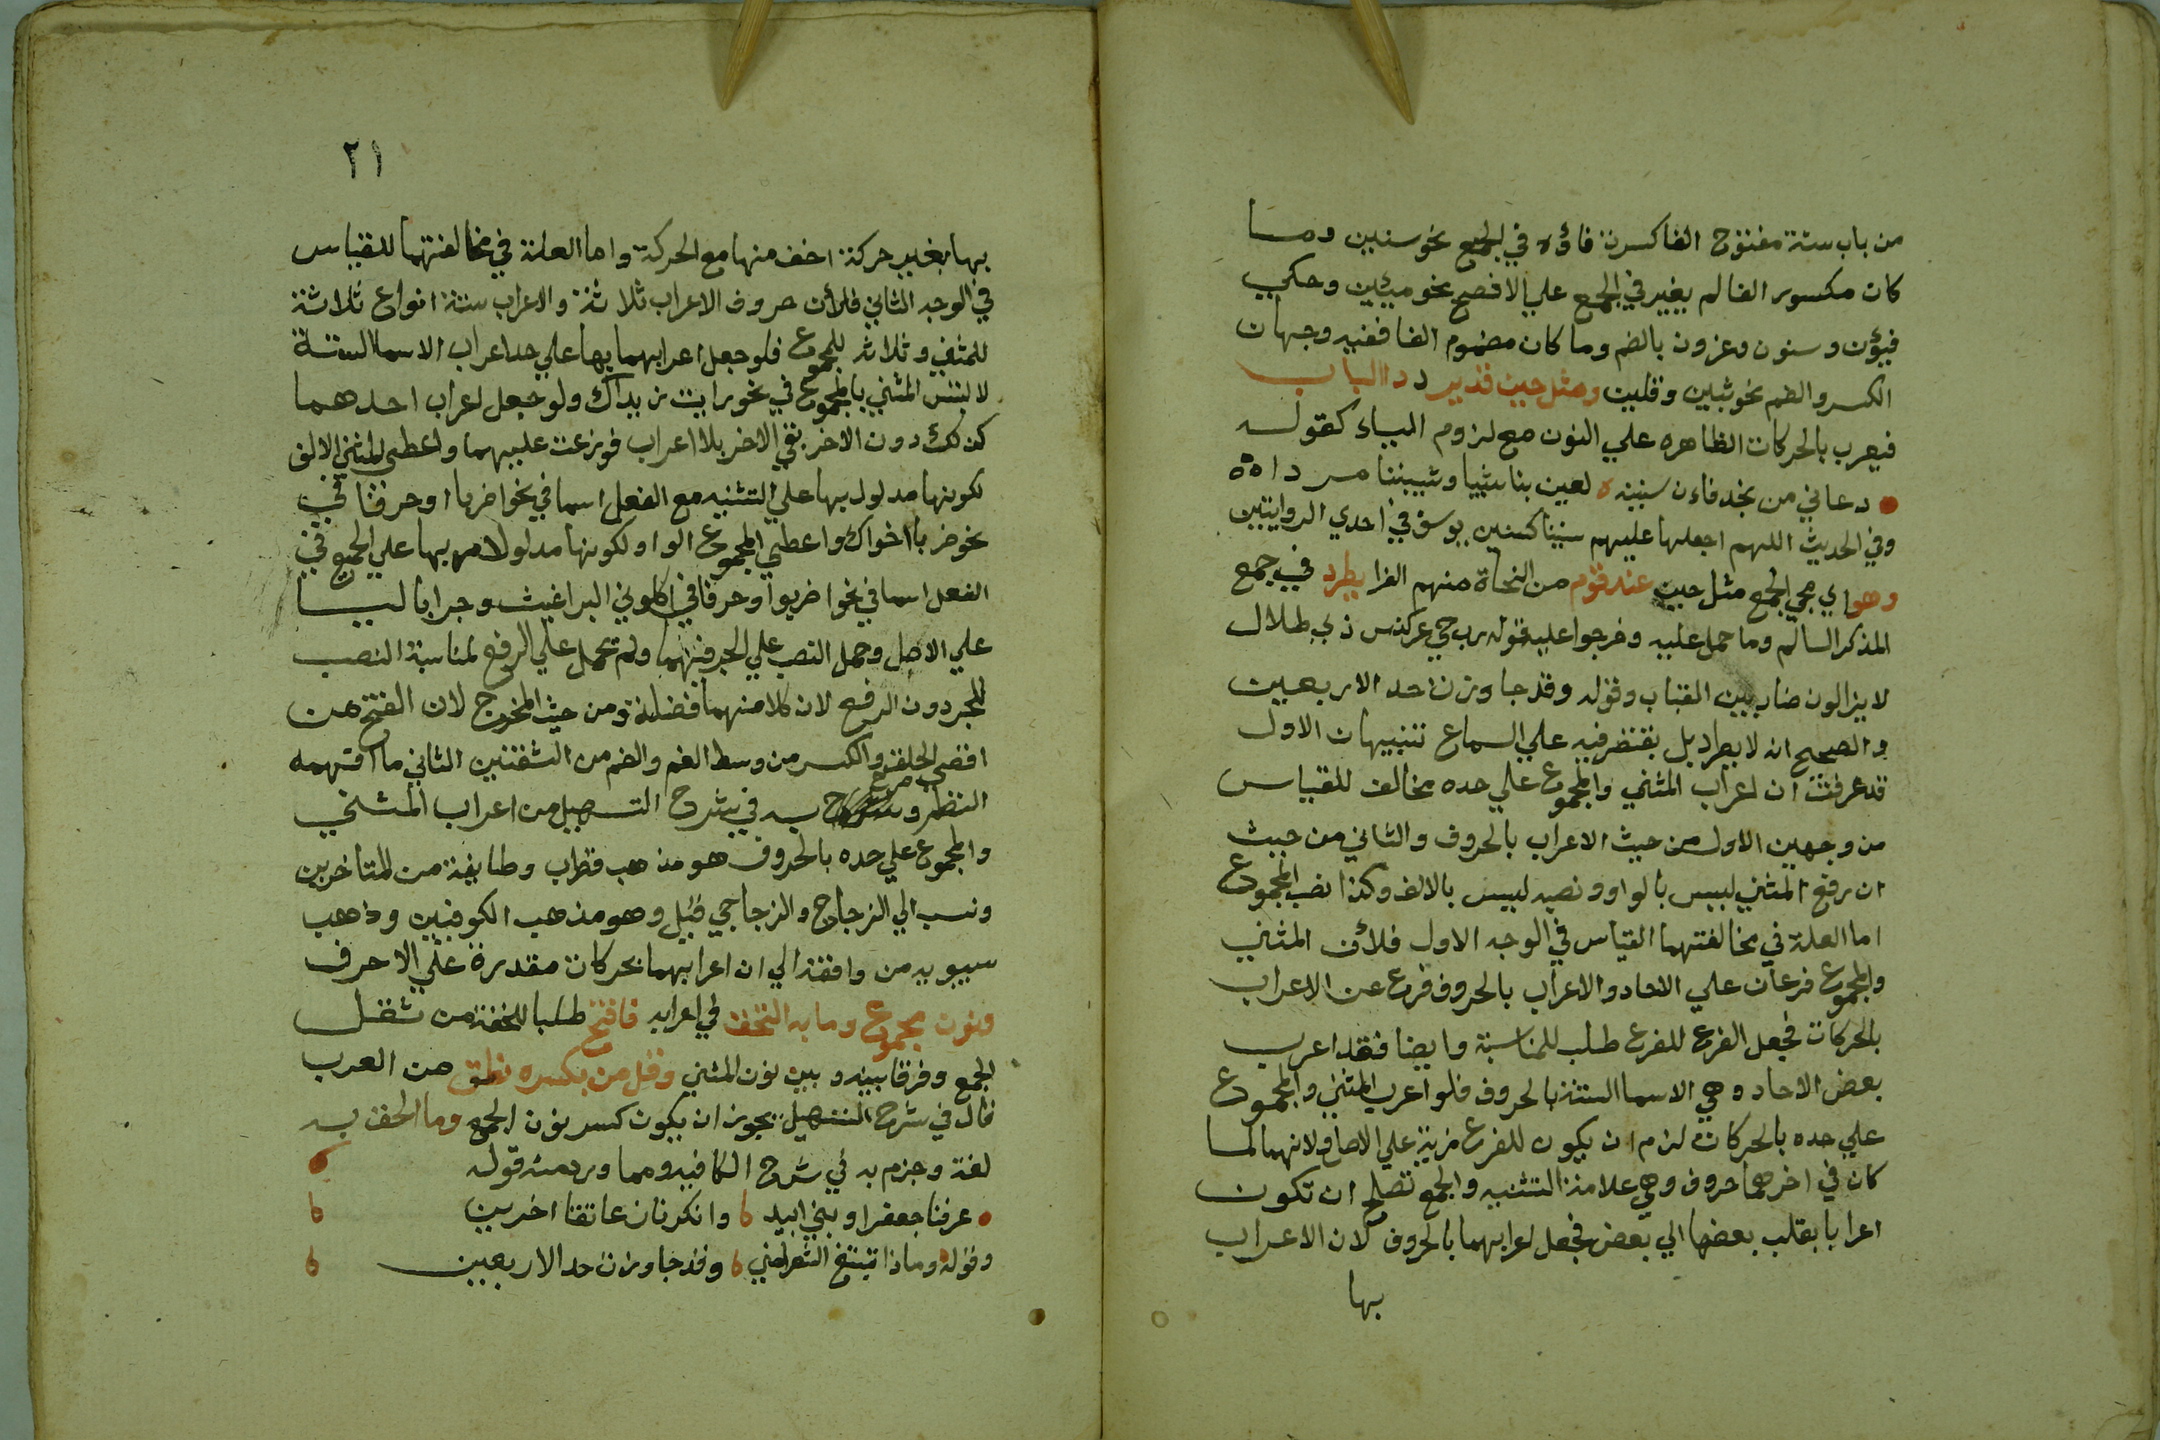 من باب سنة مفتوح الفا كسرت فاؤه في الجمع نحو سنين وما
كان مكسور الفا لم يغير في الجمع علي الافصح نحو ميئين وحكي
فيؤن وسنون وعزون بالضم وما كان مضموم الفا ففيه وجهان
الكسر والضم نحو ثبين وقلين ومثل حين قد يرد ذا الباب
فيعرب بالحركات الظاهره علي النون مع لزوم الياء كقوله
دعاني من نجد فان سنينه لعبن بنا شيبا وشيبننا مردا
وفي الحديث اللهم اجعلها عليهم سنينا كسنين يوسف في احدي الروايتين
وهو اي مجي الجمع مثل حين عند قوم من النحاة منهم الفرا يطرد في جمع
المذكر السالم وما حمل عليه وخرجوا عليه قوله رب حي عرندس ذي طلال
لا يزالون ضاربين القباب وقوله وقد جاوزت حد الاربعين
والصحيح انه لا يطرد بل يقتصر فيه علي السماع تنبيهات الاول
قد عرفت ان اعراب المثني والمجموع علي حده مخالف للقياس
من وجهين الاول من حيث الاعراب بالحروف والثاني من حيث
ان رفع المثني ليس بالواو ونصبه ليس بالالف وكذا نصب المجموع
اما العلة في مخالفتهما القياس في الوجه الاول فلأن المثني
والمجموع فرعان علي الاحاد والاعراب بالحروف فرع عن الاعراب
بالحركات فجعل الفرع للفرع طلب للمناسبة وايضا فقد اعرب
بعض الاحاد وهي الاسما الستة بالحروف فلو اعرب المثني والمجموع
علي حده بالحركات لزم ان يكون للفرع مزية علي الاصل ولانهما لما
كان في اخرهما حروف وهي علامة التثنيه والجمع تصلح ان تكون
اعرابا بقلب بعضها الي بعض فجعل اعرابهما بالحروف لان الاعراب
بها
٢١
بها بغير حركة اخف منها مع الحركة واما العلة في مخالفتهما للقياس
في الوجه الثاني فلأن حروف الاعراب ثلاثة والاعراب ستة انواع ثلاثة
للمثني وثلاثه للمجموع فلو جعل اعرابهما بها علي حد اعراب الاسما الستة
لالتبس المثني بالمجموع في نحو رايت زيداك ولو جعل اعراب احدهما
كذلك دون الاخر بقي الاخر بلا اعراب فوزعت عليهما واعطي المثني الالف
لكونها مدلول بها علي التثنيه مع الفعل اسما في نحو اضربا او حرفا في
نحو ضربا اخواك واعطي المجموع الواو لكونها مدلولا بها علي الجمع في
الفعل اسما في نحو اضربوا وحرفا في اكلوني البراغيث وجرا باليا
علي الاصل وحمل النصب علي الجر فيهما ولم يحمل علي الرفع لمناسبة النصب
للجر دون الرفع لان كلا منهما فضلة ومن حيث المخرج لان الفتح من
اقصي الحلق والكسر من وسط الفم والضم من الشفتين الثاني ما افهمه
النظم وصرح به في شرح التسهيل من اعراب المثني
والمجموع علي حده بالحروف هو مذهب قطرب وطايفة من المتاخرين
ونسب الي الزجاج والزجاجي قيل وهو مذهب الكوفيين وذهب
سيبويه من وافقه الي ان اعرابهما بحركات مقدرة علي الاحرف
ونون مجموع وما به التحق في اعرابه فافتح طلبا للخفة من ثقل
الجمع وفرقا بينه وبين نون المثني وقل من بكسره نطق من العرب
قال في شرح التسهيل يجوز ان يكون كسر نون الجمع وما الحق به
لغة وجزم به في شرح الكافيه ومما ورد منه قوله
عرفنا جعفرا وبني ابيه وانكرنا زعانف اخرين
وقوله وماذا تبتغي الشعرا مني وقد جاوزت حد الاربعين